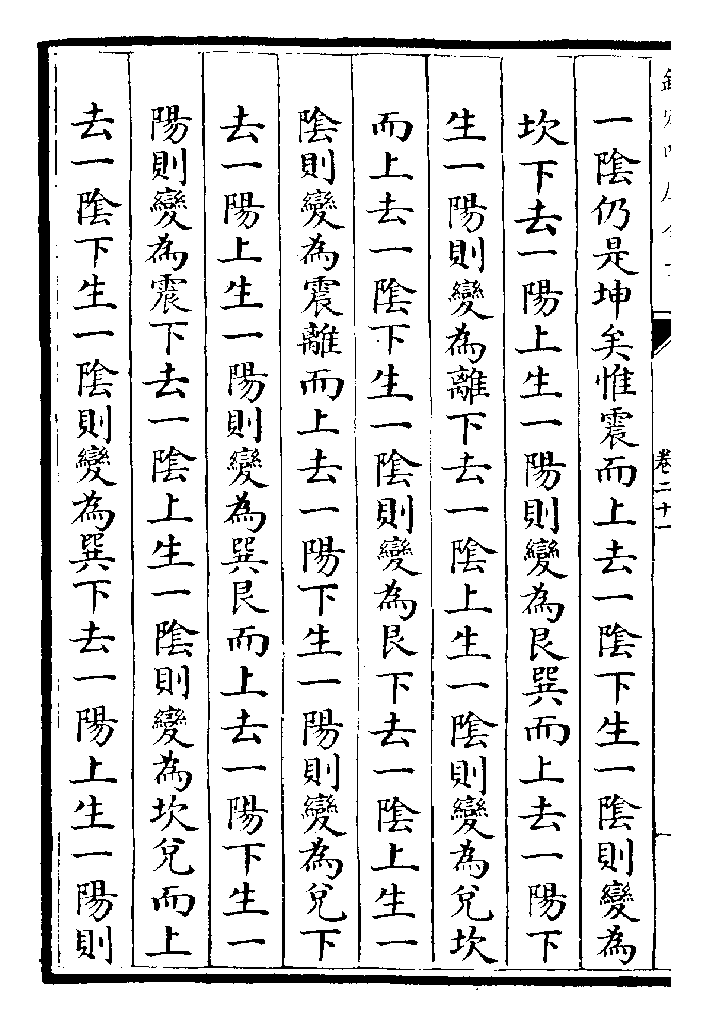 一陰仍是坤矣惟震而上去一陰下生一陰則變為
坎下去一陽上生一陽則變為艮巽而上去一陽下
生一陽則變為離下去一陰上生一陰則變為兌坎
而上去一陰下生一陰則變為艮下去一陰上生一
陰則變為震離而上去一陽下生一陽則變為兌下
去一陽上生一陽則變為巽艮而上去一陽下生一
陽則變為震下去一陰上生一陰則變為坎兌而上
去一陰下生一陰則變為巽下去一陽上生一陽則
卷二十一